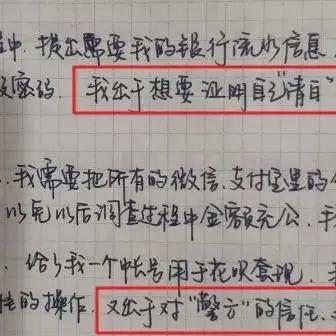 中．提出需要我的银行流水信息
密码．我出于想要证明自己"清白"
．我需要把所有的微信、支付宝里的
以免以后调查过程中金额充公．
．给了我一个帐号用于花呗套现．
的操作．又出于对"警方"的信任．